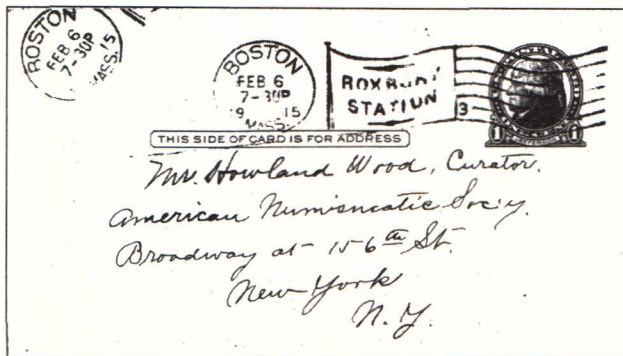 BOSTON
FEB 6
7-30P
15
MASS.
BOSTON
FEB 6
7-30P
19 15
MASS.
ROXBURY
STATION
3
1 1
THIS SIDE OF CARD IS FOR ADDRESS
Mr. Howland Wood, Curator.
American Numismatic Soc'y.
Broadway at 156th St.
New York
N. Y.